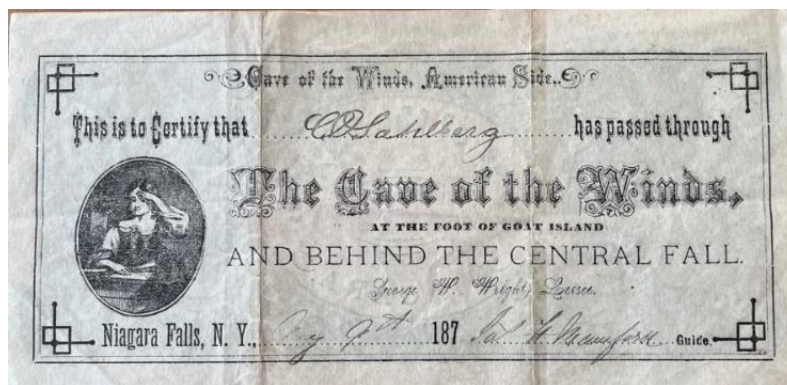 Cave of the Winds, American Side.
This is to Certify that C O Sahlberg has passed through
The Cave of the Winds,
AT THE FOOT OF GOAT ISLAND
AND BEHIND THE CENTRAL FALL.
George W. Wright, Lessee.
Niagara Falls, N. Y., 187 Guide.